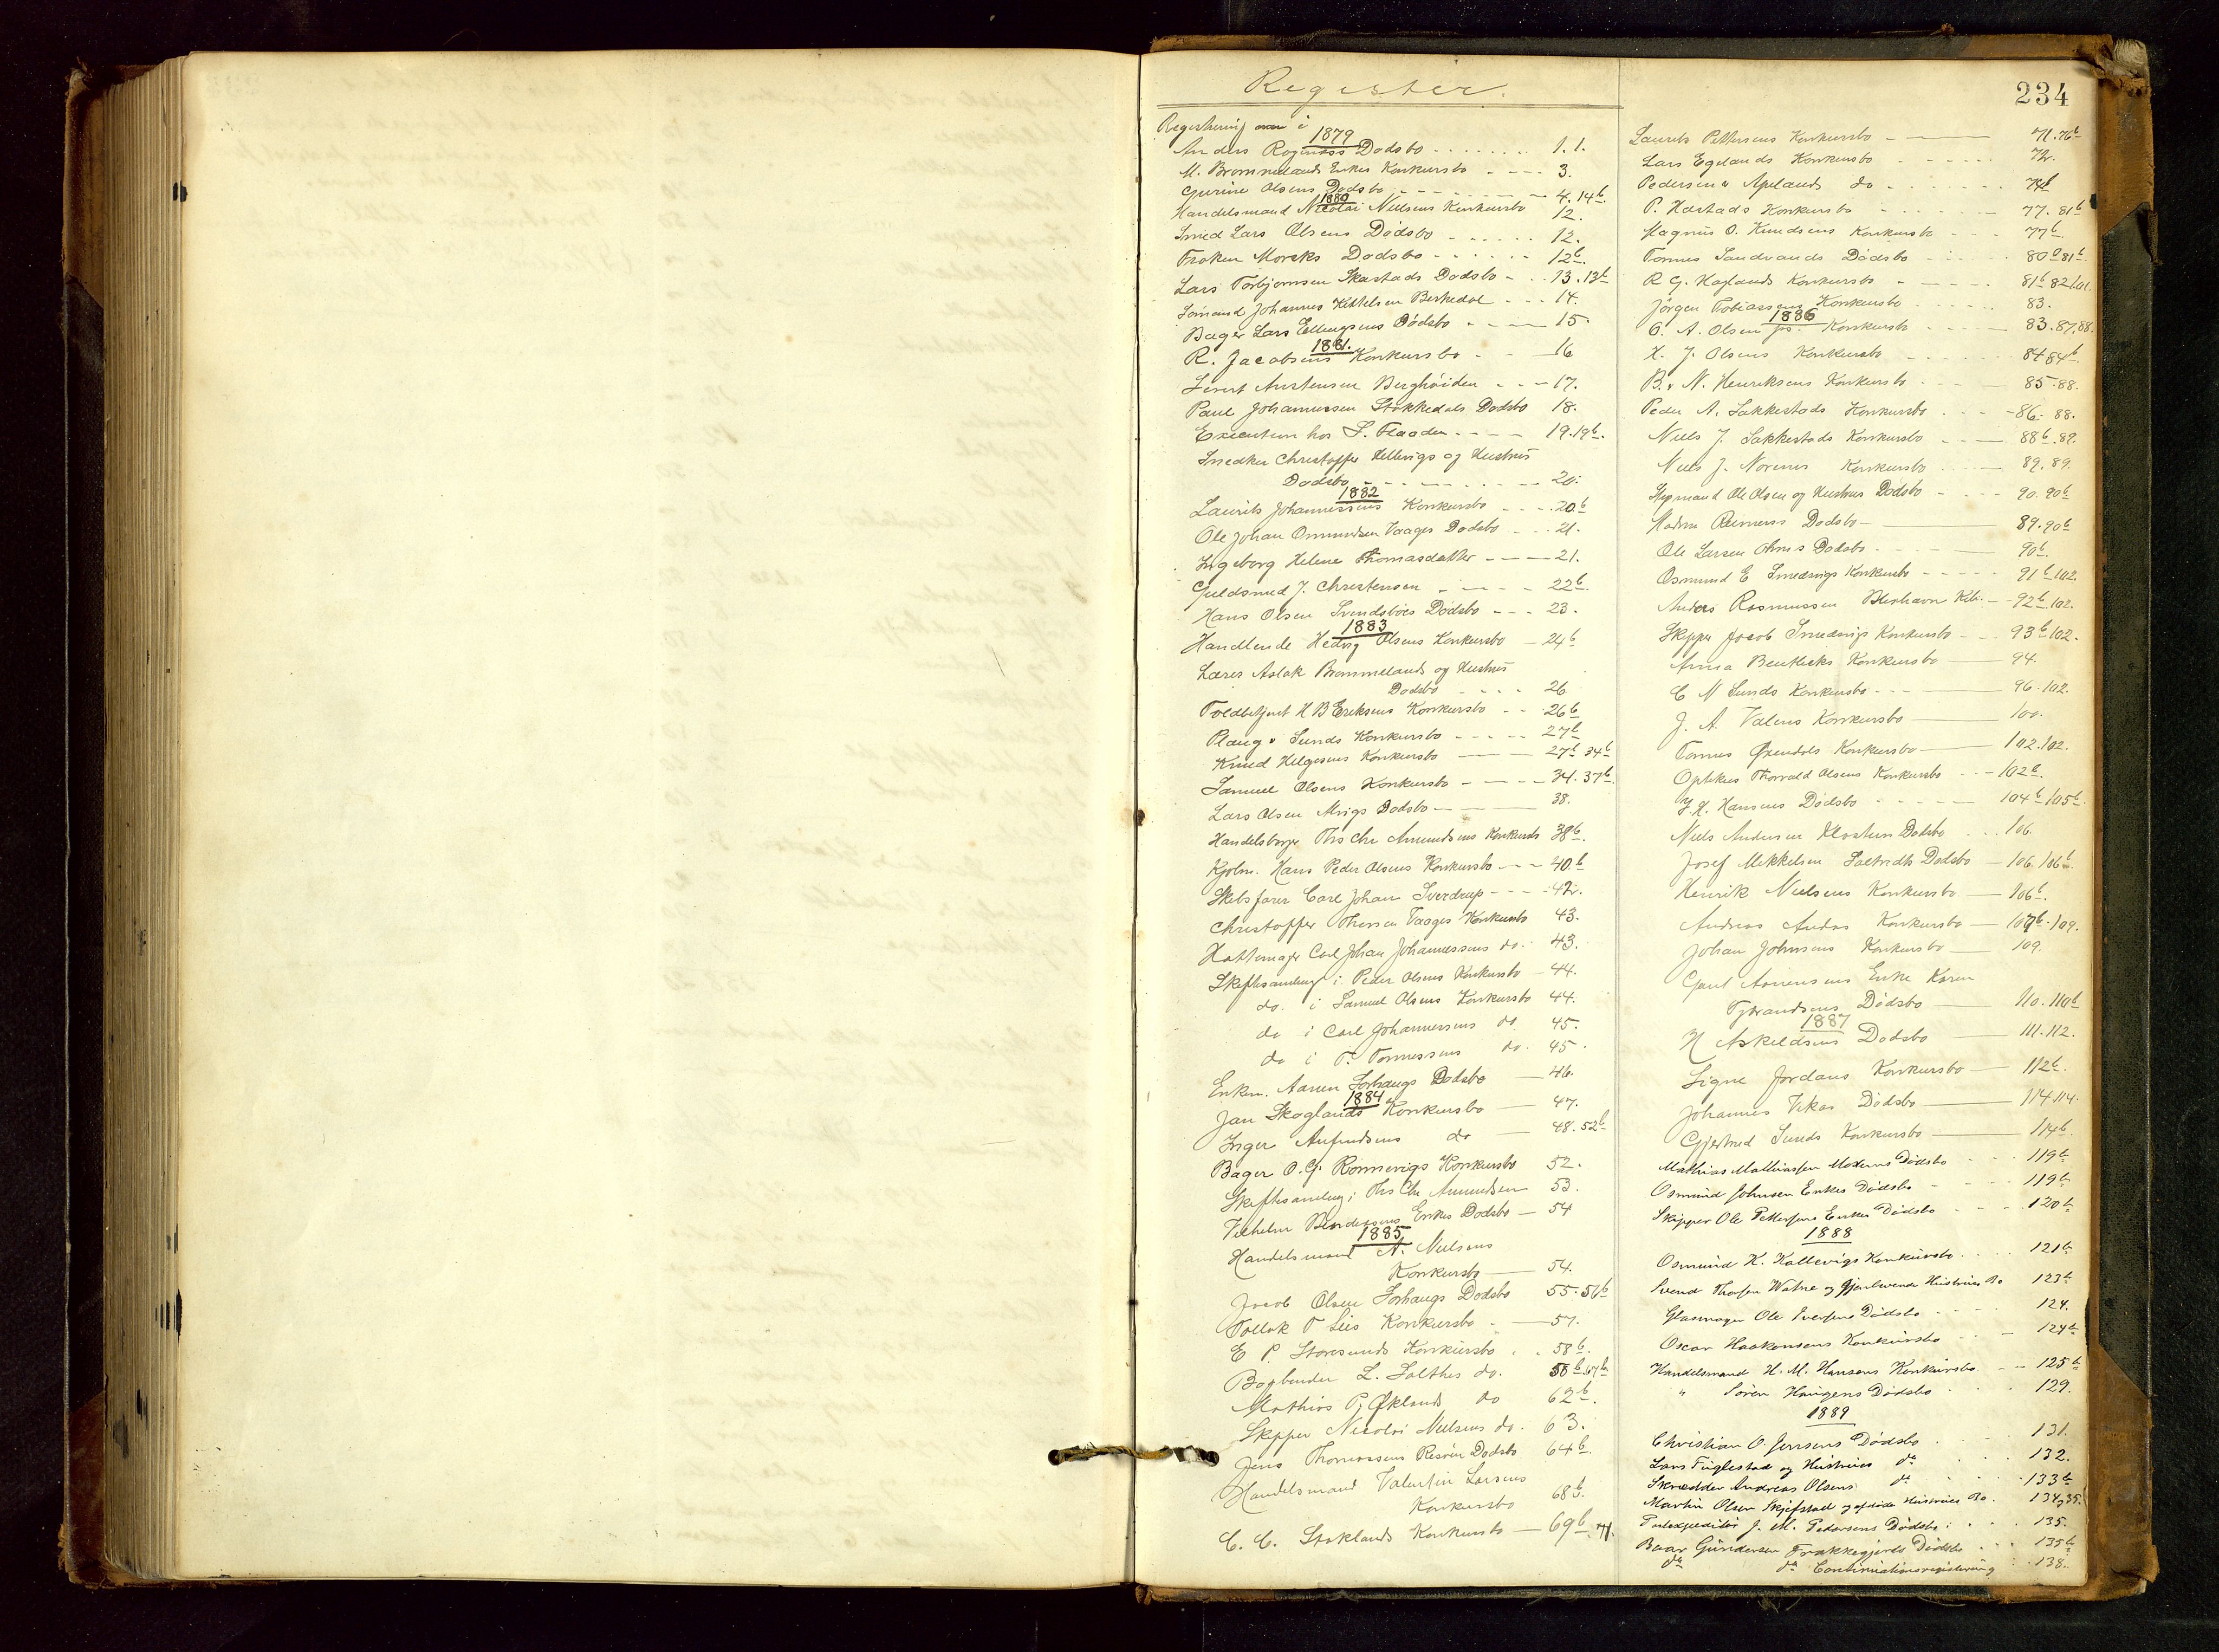 Register.
234
Registrering i
1879
Anders Dødsbo 1.1.
M. Brommelands Enkes Konkursbo 3.
Gurine Olsens Dødsbo 4.14b
1880
Handelsmand Nicolai Nielsens Konkursbo 12.
Smed Lars Olsens Dødsbo 12.
Frøken Dødsbo 12b
Lars Torbjørnsen Skastads Dødsbo 13.13b
Johannes Kittelsen 14.
Bager Lars Ellingsens Dødsbo 15.
1881.
R. Jacobsens Konkursbo 16
Sivert Austensen 17.
Paul Johannessen Stokkedals Dødsbo 18.
Execution hos 19.19b
Snedker Christoffer og Hustrus
Dødsbo 20.
1882
Laurits Johannessens Konkursbo 20b
Ole Johan Osmundsen Vaages Dødsbo 21.
Ingeborg Helene Thomasdatter 21.
Guldsmed J. Christensen 22b
Hans Olsen Svendsbøes Dødsbo 23.
1883
Handlende Hedvig Olsens Konkursbo 24b
Lærer Aslak Brommelands og Hustrus
Dødsbo 26
Toldbetjent H B Eriksens Konkursbo 26b
Plaug & Sunds Konkursbo 27b
Knud Helgesens Konkursbo 27b 34b
Samuel Olsens Konkursbo 34.37b
Lars Olsen Dødsbo 38.
Ths Chr Amundsens Konkursbo 38b
Hans Peder Olsens Konkursbo 40b
Skibsfører Carl Johan Sverdrup 42.
Christoffer Vaages Konkursbo 43.
Hattemager Carl Johan Johannessens do. 43.
Skiftesamling i Peder Olsens Konkursbo 44.
do. i Samuel Olsens Konkursbo 44.
do i Carl Johannessens do 45.
do i T. Tonnessens do. 45.
Aanen Sørhaugs Dødsbo 46.
1884
Jan Skoglands Konkursbo 47.
Inger do 48.52b
Bager O. G. Rønnevigs Konkursbo 52.
Skiftesamling i Ths Chr Amundsen 53.
Vilhelm Enkes Dødsbo 54
1885
Handelsmand A. Nielsens
Konkursbo 54.
Jacob Olsen Sørhaugs Dødsbo 55.56b
Tollak T Konkursbo 57.
E P. Storesunds Konkursbo 58b
Bogbinder L. Salthes do. 58b 67b
Mathias P. Øklands do 62b
Skipper Nicolai Nielsens do. 63.
Jens Thomassens Dødsbo 64b
Handelsmand Valentin Larsens
Konkursbo 68b
C. C. Stoklands Konkursbo 69b. 71.
Laurits Pettersens Konkursbo 71.76b
Lars Egelands Konkursbo 72.
Pedersen & Apelands do
P. Hastads Konkursbo 77.81b
Magnus O. Knudsens Konkursbo 77b
Tønnes Sandvands Dødsbo 80b 81b
R G. Haglands Konkursbo 81b 82
Jørgen Tobiassens Konkursbo 83.
1886
O. A. Olsen Konkursbo 83.87.88.
K. J. Olsens Konkursbo 84 84b
B. & N. Henriksens Konkursbo 85.88.
Peder A. Sakkestads Konkursbo 86. 88.
Niels J. Sakkestads Konkursbo 88b.89.
Niels J. Konkursbo 89.89.
Ole Olsen og Hustrus Dødsbo 90.90b
Madam Reimers Dødsbo 89.90b
Ole Larsen Dødsbo 90b.
Osmund E Smedsvigs Konkursbo 91b 102.
Anders Rasmussen 92b.102.
Skipper Jacob Smedsvigs Konkursbo 93b 102.
Anna Konkursbo 94.
C M Sunds Konkursbo 96.102.
J. A. Valens Konkursbo 100.
Tønnes Konkursbo 102.102.
Optikus Thorvald Olsens Konkursbo 102b
Hansens Dødsbo 104b 105b
Niels Andersen Dødsbo 106.
Josef Mikkelsen Dødsbo 106.106b
Henrik Nielsens Konkursbo 106b.
Andreas Konkursbo 109.
Johan Johnsens Konkursbo 109.
Gaut Enke Karen
Dødsbo 110.110b
1887
Askeldsens Dødsbo 111.112.
Signe Jordans Konkursbo 112b.
Johannes Vikas Dødsbo 114 114.
Gjertrud Sunds Konkursbo 114b.
Mathias Mathiassen Dødsbo 119b
Osmund Johnsen Enkes Dødsbo 119b
Skipper Ole Pettersens Enkes Dødsbo 120b
1888
Osmund K. Kallevigs Konkursbo 121b
Svend Thorsen og gjenlevende Hustrues Bo 123b
Glasmager Ole Iversens Dødsbo 124.
Oscar Haakonsens Konkursbo 124b
Handelsmand H. M. Hansens Konkursbo 125b
" Søren Haugens Dødsbo 129.
1889
Christian O. Jensens Dødsbo 131.
Lars Fuglestad og Hustrues do 132.
Skrædder Andreas Olsens do 133b
Martin Olsen Skjefstad og Hustrues Bo. 134,35.
Postexpeditør J. M. Pedersens Dødsbo 135.
Baar Gundersen Frakkagjerds Dødsbo 135b
do do Continuationsregistrering 138.